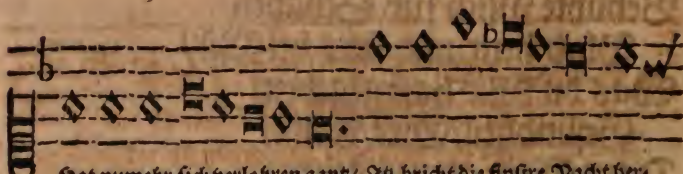 Hat numehr sich verlohren gantz/ Itz bricht die finstre Nacht her⸗